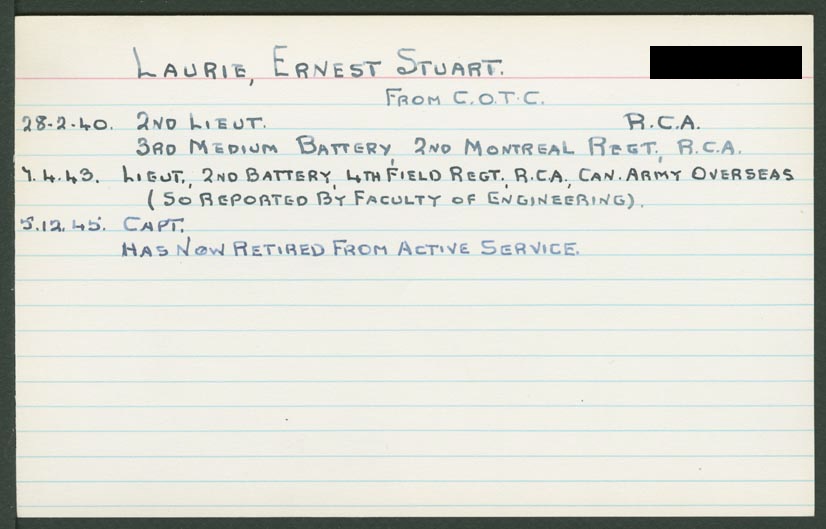 LAURIE, ERNEST STUART.
FROM C.O.T.C.
28-2-40. 2ND LIEUT. R.C.A.
3RD MEDIUM BATTERY, 2ND MONTREAL REGT., R.C.A.
7.4.43. LIEUT., 2ND BATTERY, 4TH FIELD REGT., R.C.A., CAN. ARMY OVERSEAS
(SO REPORTED BY FACULTY OF ENGINEERING).
5.12.45. CAPT.
HAS NOW RETIRED FROM ACTIVE SERVICE.